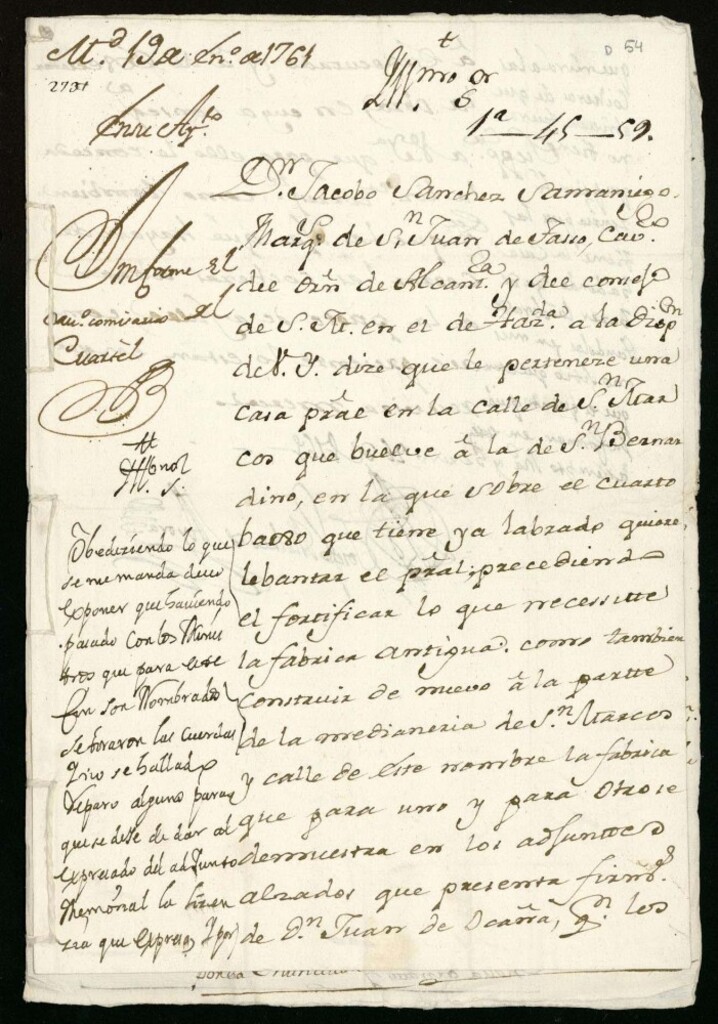 M.d 19 de En.o de 1761
D 54
2731
†
Illmo S.or
1a — 45 — 59.
D.n Jacobo Sanchez Samaniego
Marq.s de S.n Juan de Tasso, Cav.o
del Orn de Alcant.ra y del consejo
de S. M. en el de Haz.da a la Dispon
de V. Y. dize que le perteneze una
casa prãl en la calle de S.n Mar
cos que buelve â la de S.n Bernar
dino, en la que sobre el cuarto
baxo que tiene ya labrado quiere
lebantar el prãl; precediendo
el fortificar lo que necessite
la fabrica antigua. como tambien
construir de nuevo â la partte
de la medianeria de S.n Marcos
y calle de este nombre la fabrica
que para uno y para otro se
demuestra en los adjuntos
alzados que presenta firm.s
de D.n Juan de Ocaña, p.r los
Informe El
comisario del
Cuartel
††
Illmo S.or
S.
Obedeziendo lo que
se me manda devo
exponer que haviendo
pasado con los Minis
tros que para este
fin son Nombrados
se tiraron las Cuerdas
y no se hallado
reparo alguno para
que se deje de dar al
expresado del adjunto
Memorial la lizen
zia que expresa, y por